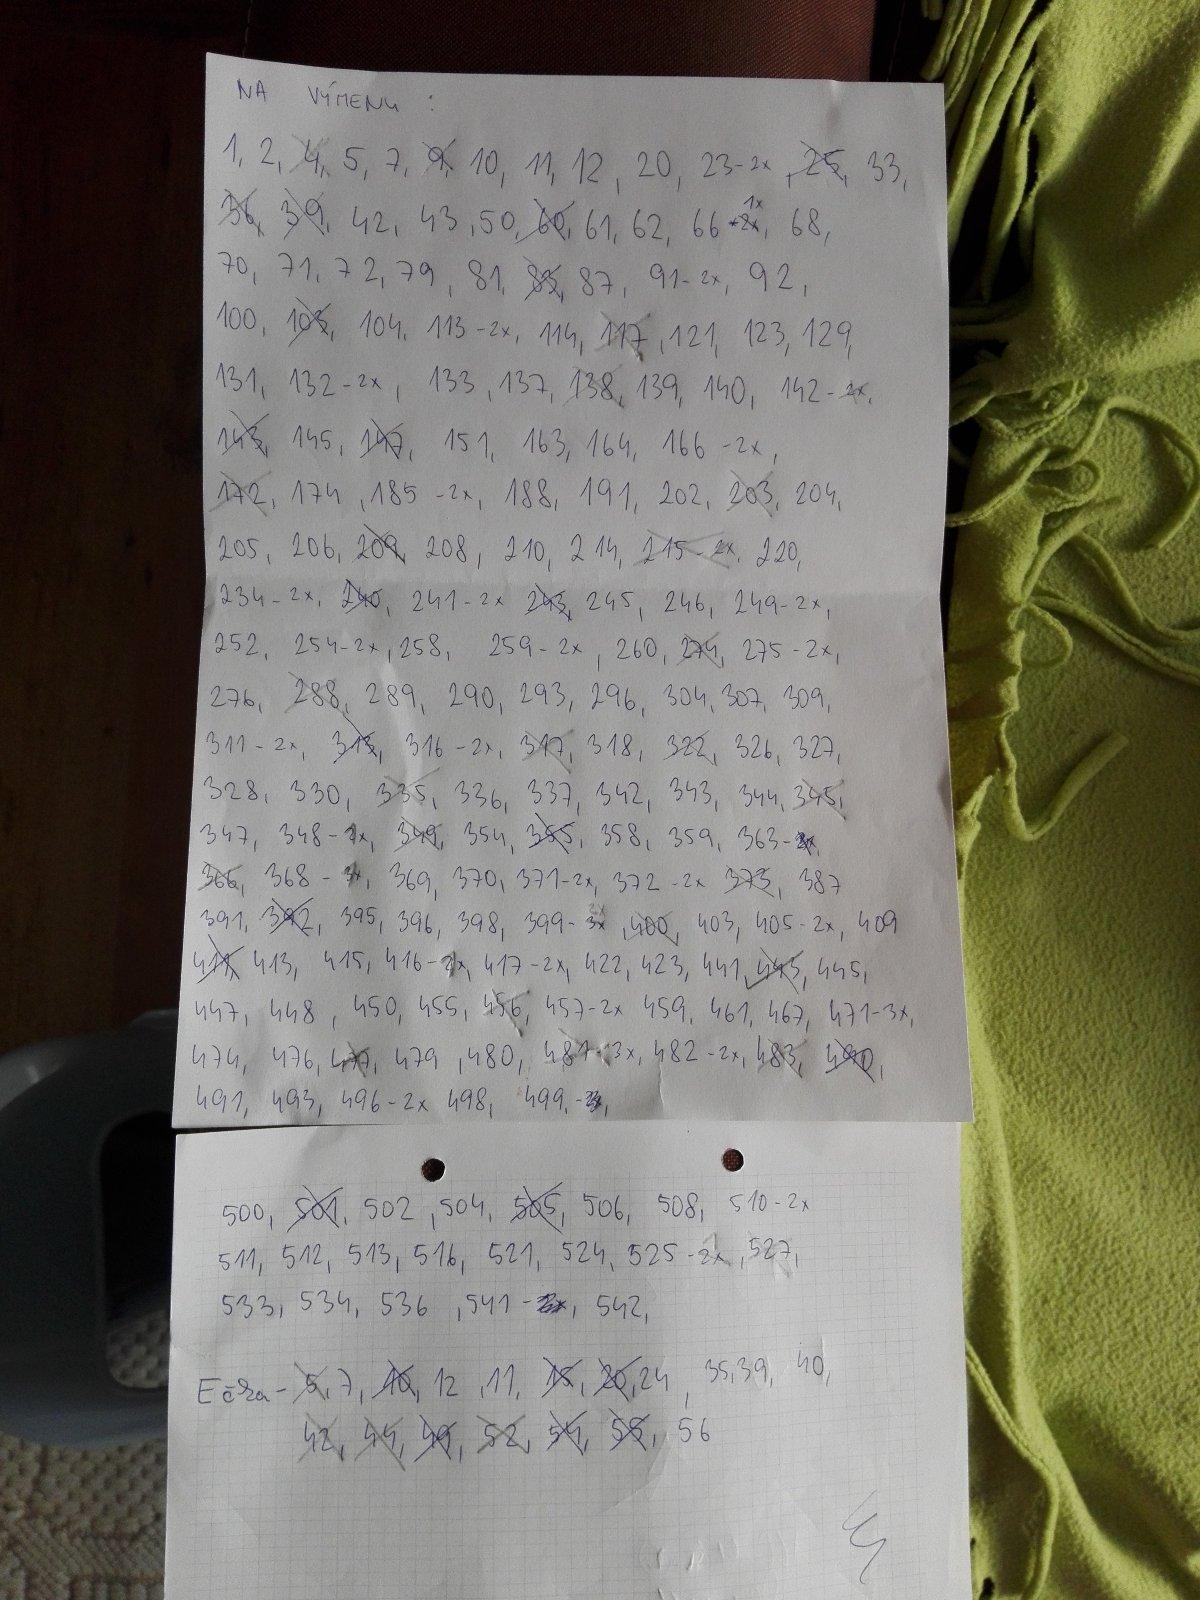 NA VÝMENU :
1, 2, 4, 5, 7, 9, 10, 11, 12, 20, 23-2x, 25, 33,
36, 39, 42, 43, 50, 60, 61, 62, 66 -2x 1x, 68,
70, 71, 72, 79, 81, 83, 87, 91-2x, 92,
100, 103, 104, 113-2x, 114, 117, 121, 123, 129,
131, 132-2x, 133, 137, 138, 139, 140, 142-2x,
143, 145, 147, 151, 163, 164, 166 -2x,
172, 174, 185 -2x, 188, 191, 202, 203, 204,
205, 206, 209, 208, 210, 214, 215-2x, 220,
234-2x, 240, 241-2x 243, 245, 246, 249-2x,
252, 254-2x, 258, 259-2x, 260, 274, 275-2x,
276, 288, 289, 290, 293, 296, 304, 307, 309,
311-2x, 313, 316-2x, 317, 318, 322, 326, 327,
328, 330, 335, 336, 337, 342, 343, 344, 345,
347, 348- 349, 354, 355, 358, 359, 363-
366, 368 - 369, 370, 371-2x, 372-2x 373, 387
391, 392, 395, 396, 398, 399-3x 2x, 400, 403, 405-2x, 409
411, 413, 415, 416-2x, 417-2x, 422, 423, 441, 443, 445,
447, 448, 450, 455, 456, 457-2x 459, 461, 467, 471-3x,
474, 476, 477, 479, 480, 481-3x, 482-2x, 483, 490,
491, 493, 496-2x 498, 499-
500, 501, 502, 504, 505, 506, 508, 510-2x
511, 512, 513, 516, 521, 524, 525-2x, 527,
533, 534, 536, 541- 542,
Ečka- 5, 7, 10, 12, 11, 15, 20, 24, 35, 39, 40,
42, 44, 49, 52, 54, 55, 56